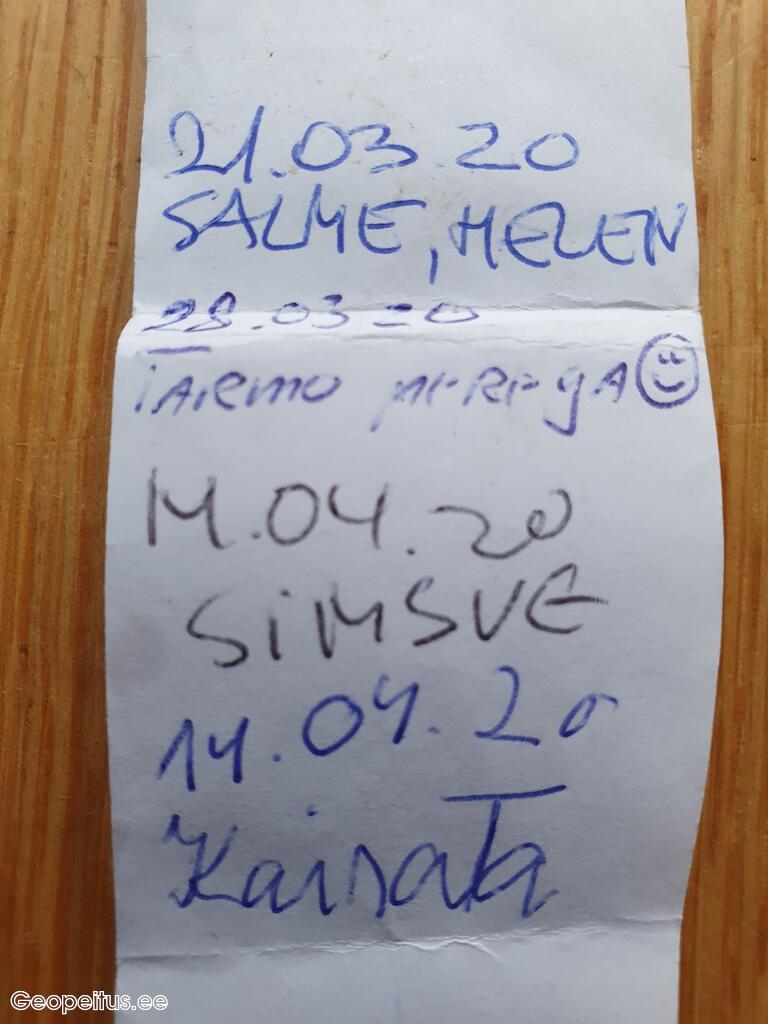 21.03.20
SALME, HELEN
28.03.20
TARMO PEREGA
14.04.20
SIMSVE
14.04.20
Geopeitus.ee